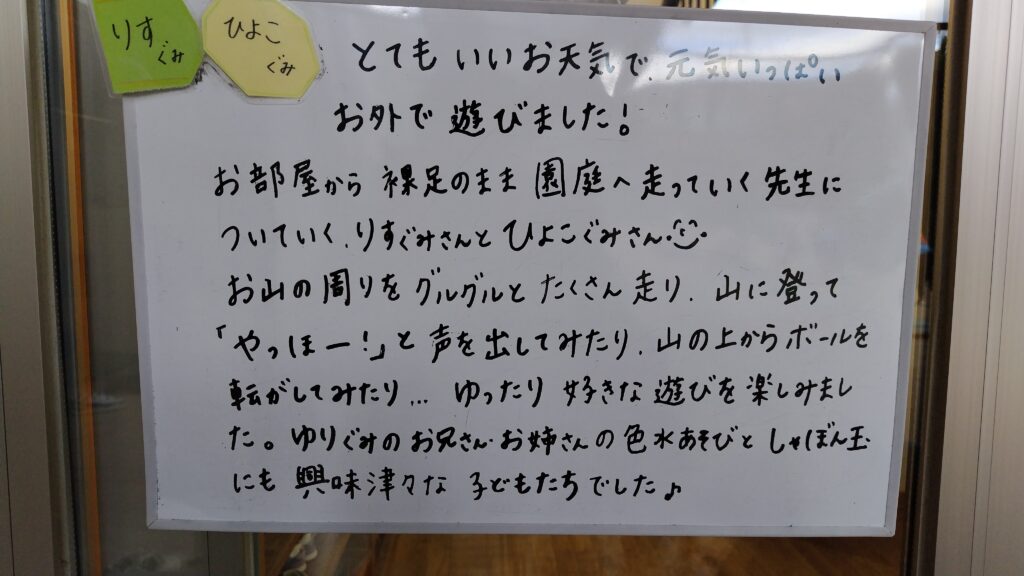 りす
ぐみ
ひよこ
ぐみ
とてもいいお天気で、元気いっぱい
お外で遊びました!
お部屋から裸足のまま園庭へ走っていく先生に
ついていく、りすぐみさんとひよこぐみさん
お山の周りをグルグルとたくさん走り、山に登って
「やっほー!」と声を出してみたり、山の上からボールを
転がしてみたり... ゆったり好きな遊びを楽しみまし
た。ゆりぐみのお兄さん・お姉さんの色水あそびとしゃぼん玉
にも興味津々な子どもたちでした♪